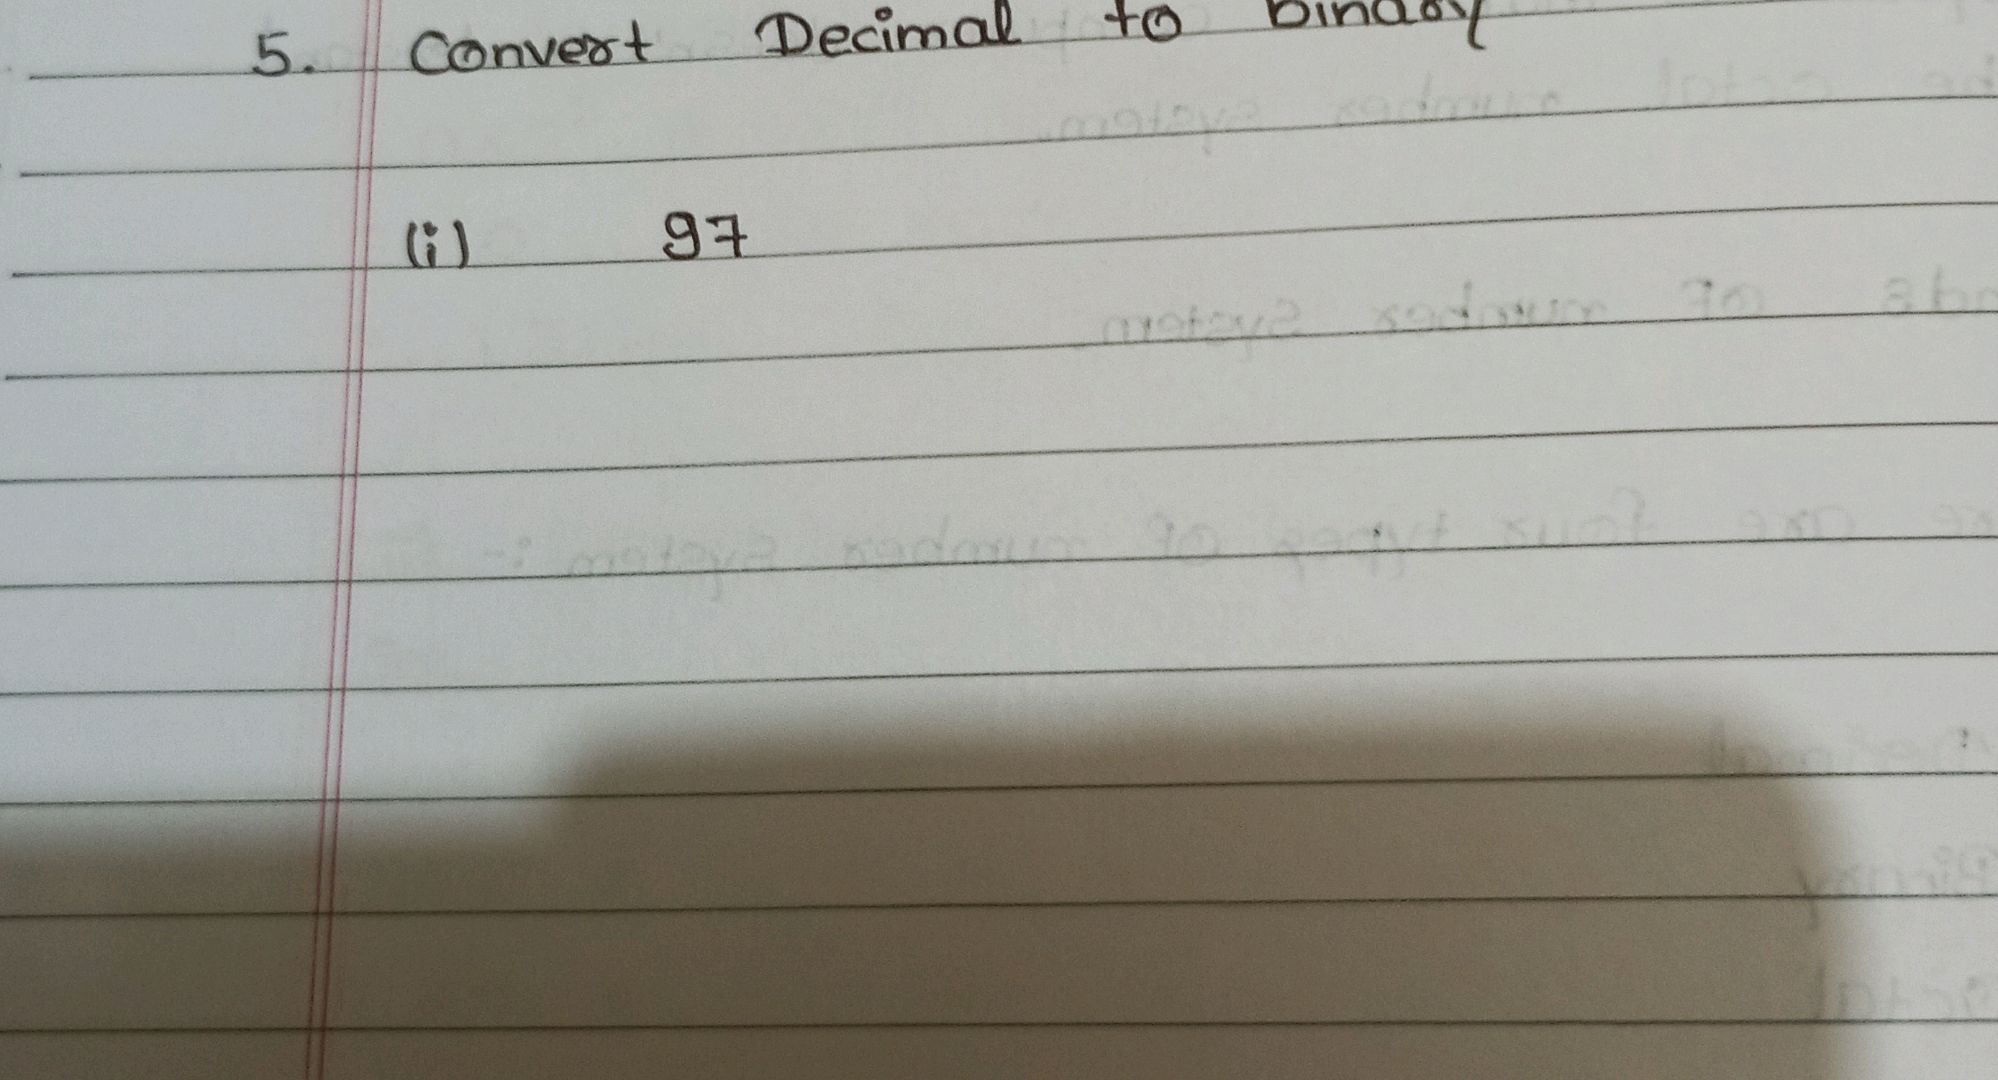 5. Convert Decimal to Binary
(i) 97